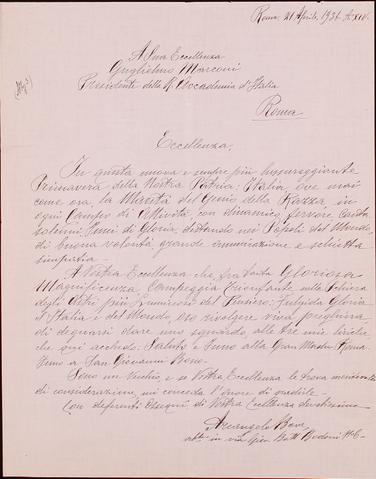 Roma, 21 Aprile, 1936. A. XIV.
A Sua Eccellenza
Guglielmo Marconi
Presidente della R. Accademia d'Italia
Roma
Eccellenza,
In questa nuova e sempre più lussureggiante
Primavera della Nostra Patria: Italia ove mai
come ora, la Maestà del Genio della Razza in
ogni Campo di Attività con dinamico fervore canta
solenni Inni di Gloria, destando nei Popoli del Mondo,
di buona volontà grande ammirazione e schietta
simpatia.
A Vostra Eccellenza che, fra tanta Gloriosa
Magnificenza Campeggia Trionfante nella Schiera
degli Astri più Luminosi del Pensiero: Fulgida Gloria
d'Italia e del Mondo oso rivolgere viva preghiera
di degnarsi dare uno sguardo, alle tre mie liriche
che qui accludo: Saluto e Inno alla Gran Madre Roma.
Inno a San Giovanni Bosco.
Sono un Vecchio, e se Vostra Eccellenza le trova meritevoli
di considerazione, mi conceda l'onore di gradirle.
Con deferenti Ossequi di Vostra Eccellenza devotissimo
Arcangelo
in via Gian Batt Bodoni